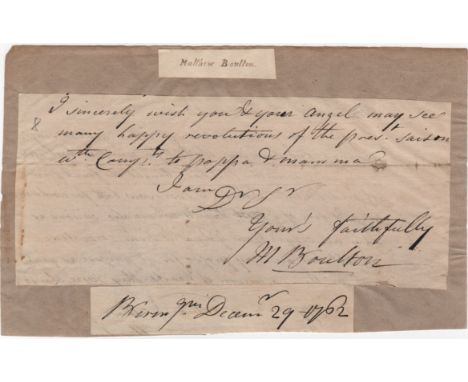 Matthew Boulton.
I sincerely wish you & your Angel may see
many happy revolutions of the prest. saison
wth Compts to pappa & mamma
8
I am Dr Sr
Your faithfully
M Boulton
Birmgm Decemr 29 1762